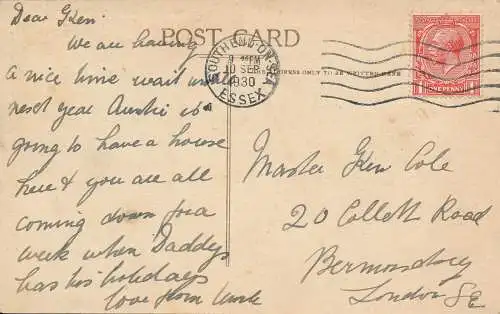 Dear Ken.
POST CARD
We are having
a nice time wait until
next year Auntie is
going to have a house
here & you are all
coming down for a
week when Daddys
has his holidays
love from Uncle
SOUTHEND-ON-SEA
10 SEP
1930
ESSEX
ONE PENNY
Master Ken Cole
20 Collett Road
Bermondsey
London SE